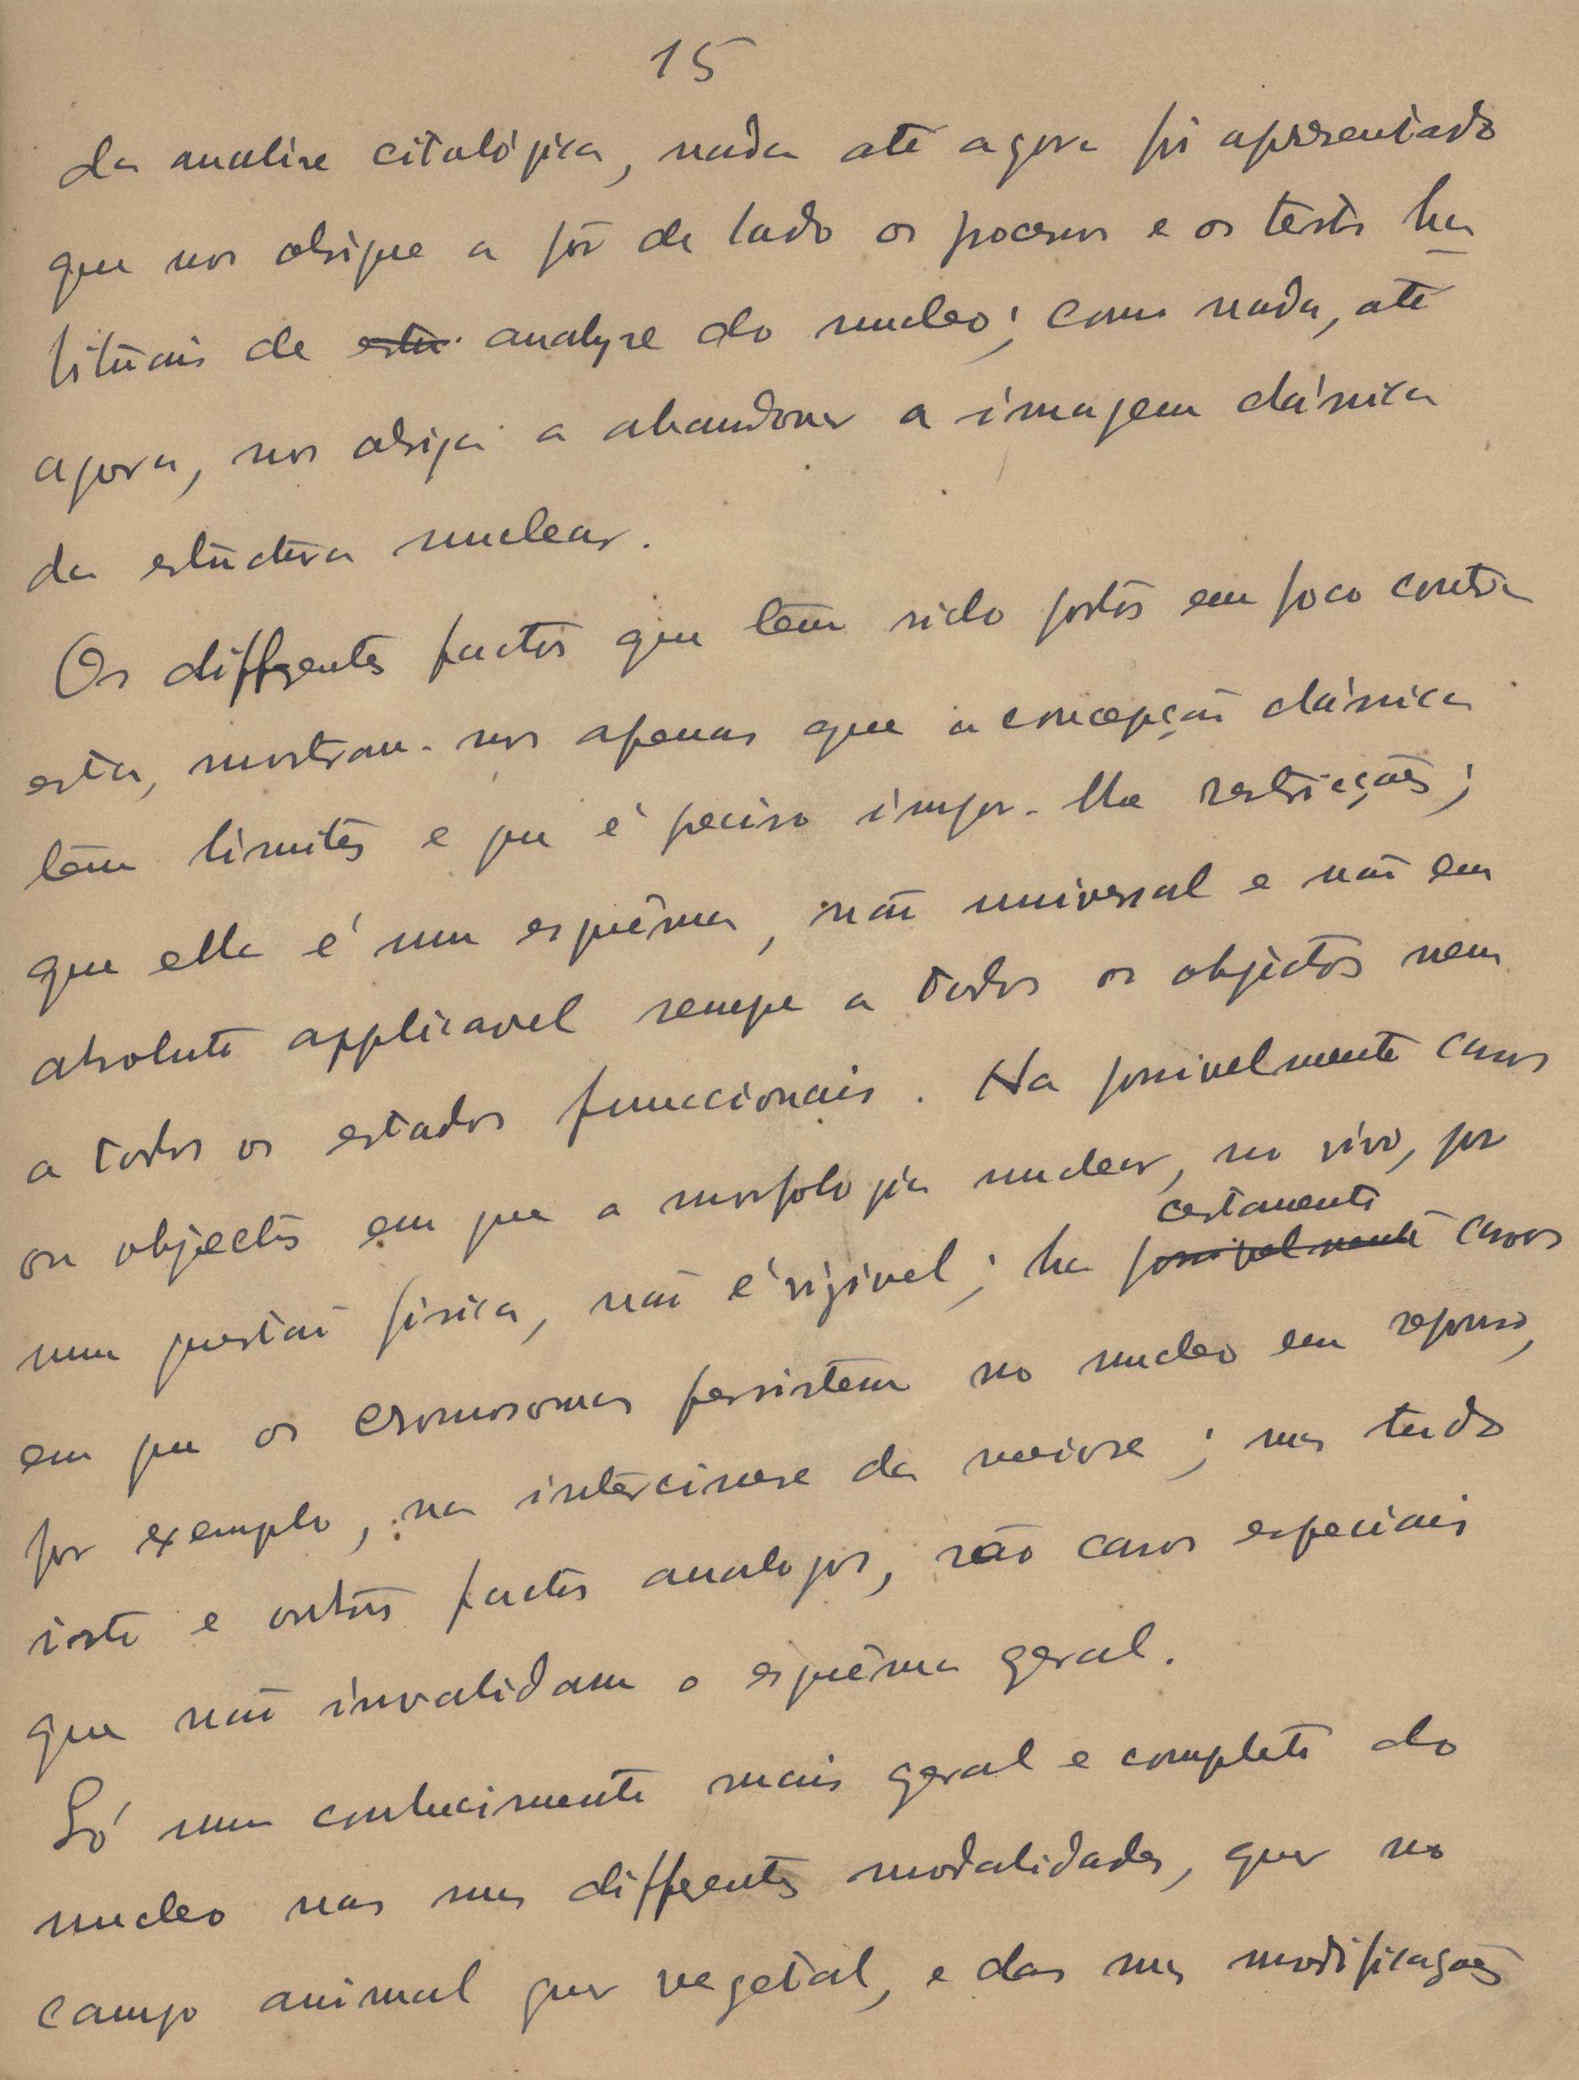 15
da analise citológica, nada até agora foi apresentado
que nos obrigue a pôr de lado os processos e os tests ha
bituais de estu analyse do nucleo; como nada, até
agora, nos obriga a abandonar a imagem clássica
da estructura nuclear.
Os differentes factos que têm sido postos em foco contra
esta, mostram-nos apenas que a concepção clássica
têm limites e que é preciso impor-lhe restricções;
que ella é um esquêma, não universal e não em
absoluto applicavel sempre a todos os objectos nem
a todos os estados funccionais. Ha possivelmente casos
ou objectos em que a morfologia nuclear, no vivo, por
certamente
uma questão fisica, não é visivel; ha possivelmente casos
em que os cromosomas persistem no nucleo em repouso,
por exemplo, na intercinese da meiose; mas tudo
isto e outros factos analogos, são casos especiais
que não invalidam o esquêma geral.
Só um conhecimento mais geral e completo do
nucleo nas suas differentes modalidades, quer no
campo animal quer vegetal, e das suas modificações